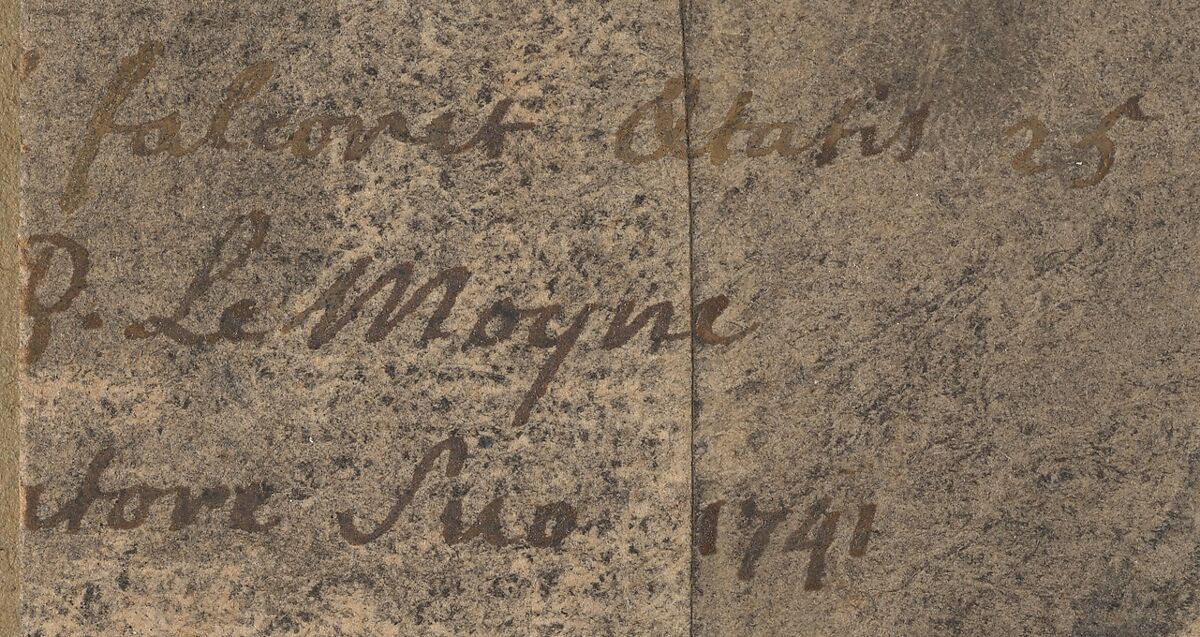 falconet Ætatis 25
P. Le Moyne
atore Suo 1741